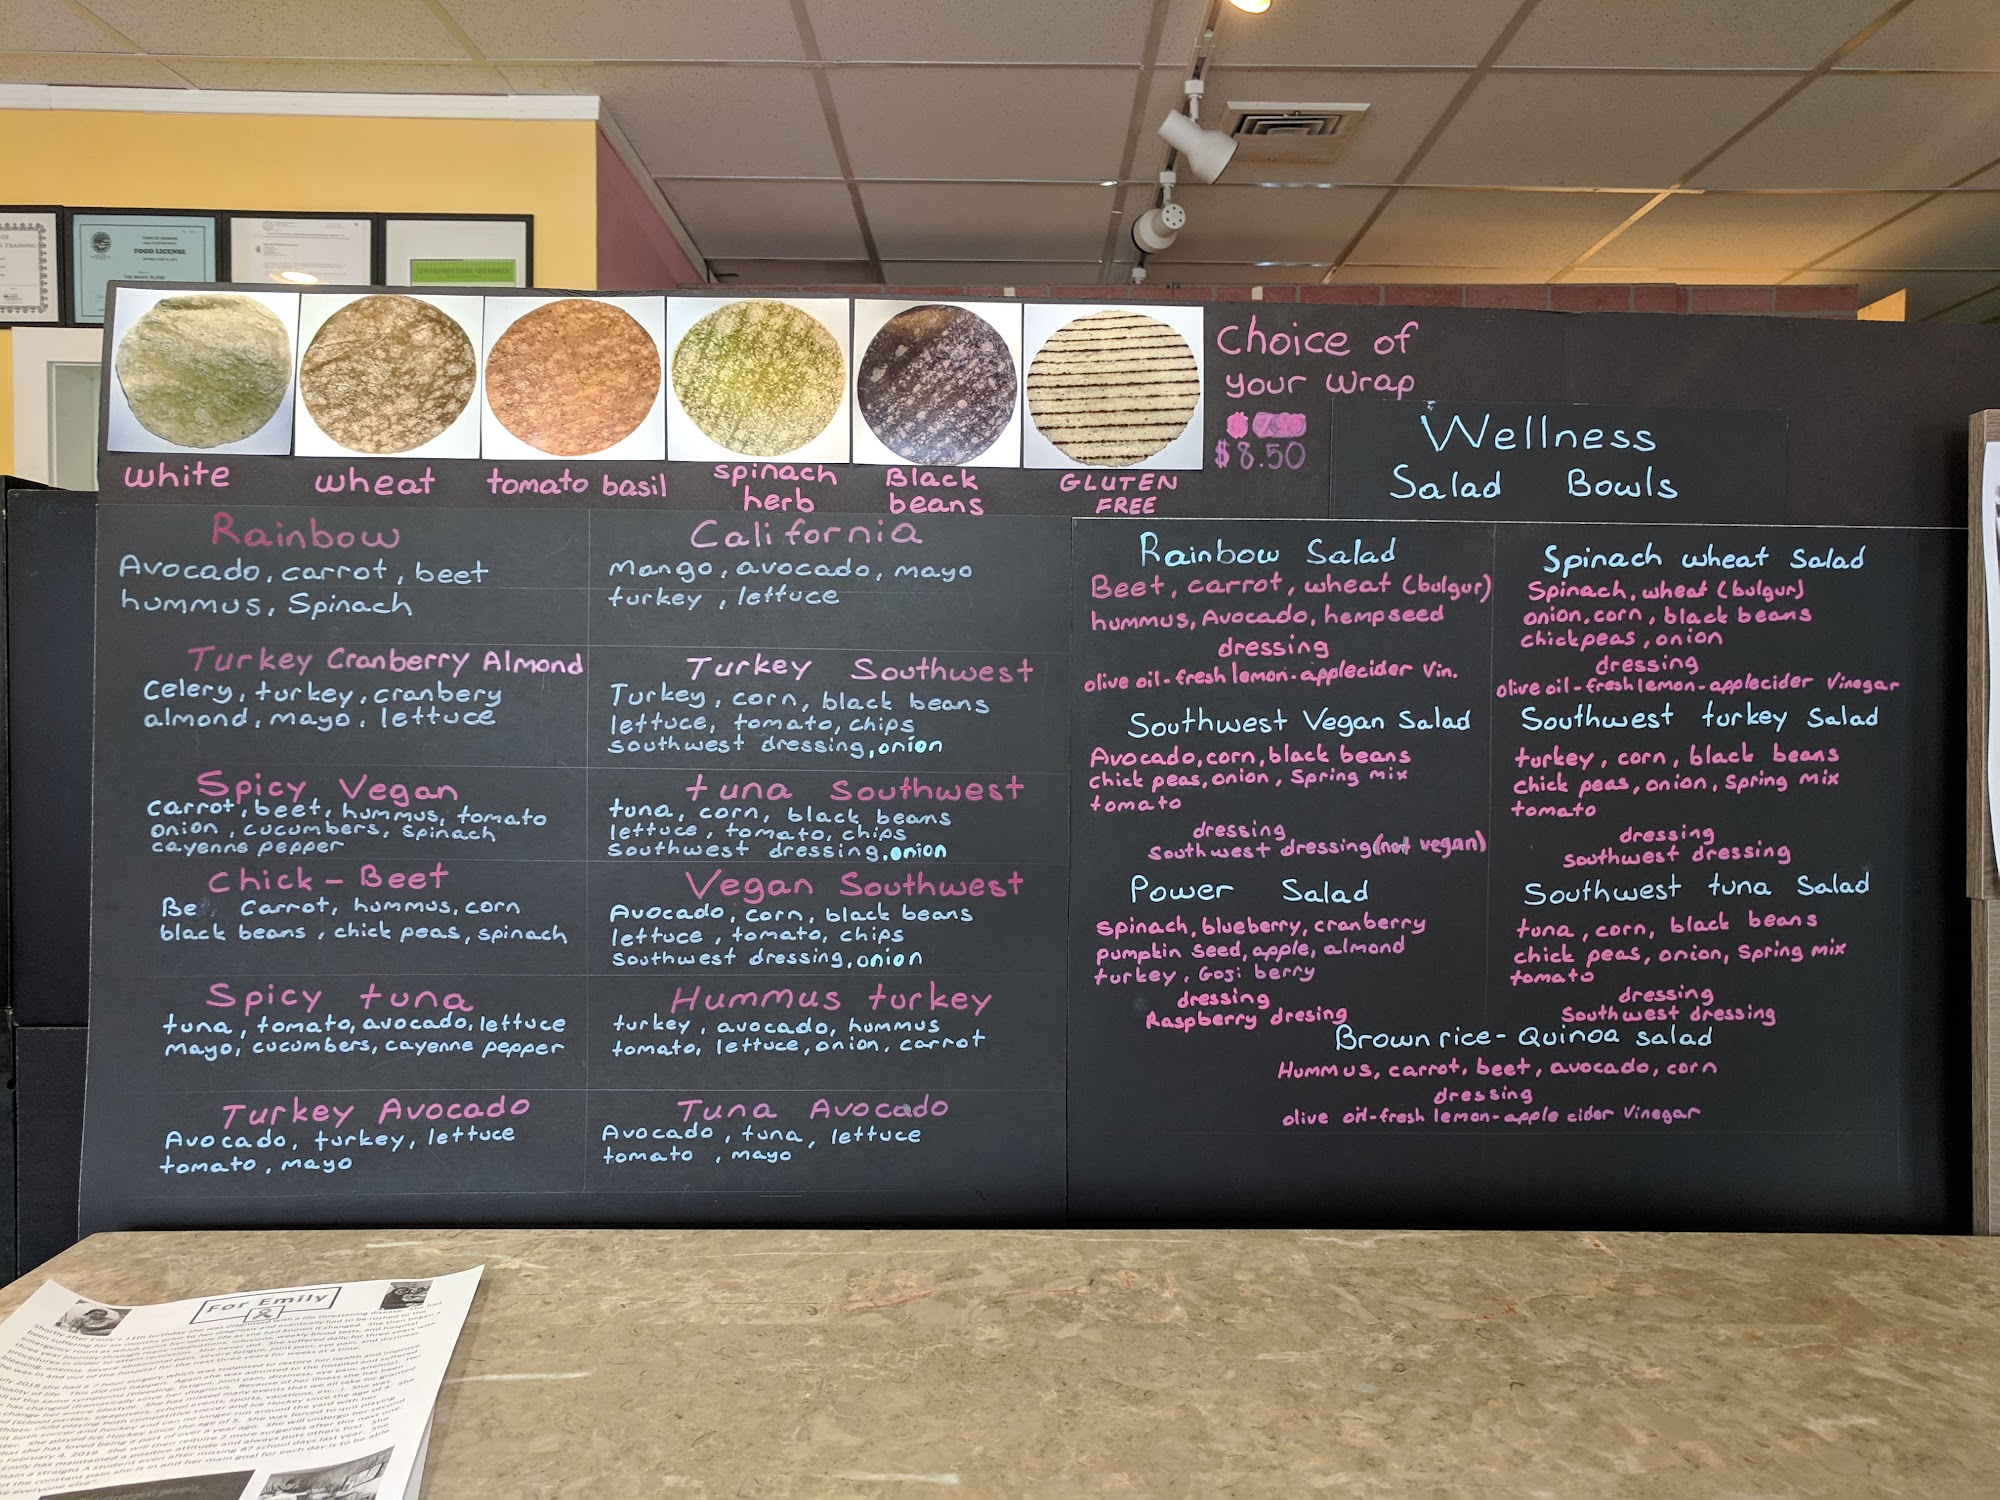 TRAINING
FOOD LICENSE
THE MAGIC BLEND
Choice of
your wrap
$8.50
white
wheat
tomato basil
spinach
herb
Black
beans
GLUTEN
FREE
Rainbow
Avocado, carrot, beet
hummus, Spinach
Turkey Cranberry Almond
Celery, turkey, cranbery
almond, mayo, lettuce
Spicy Vegan
carrot, beet, hummus, tomato
onion, cucumbers, spinach
cayenne pepper
Chick-Beet
Be Carrot, hummus, corn
black beans, chick peas, spinach
Spicy tuna
tuna, tomato, avocado, lettuce
mayo, cucumbers, cayenne pepper
Turkey Avocado
Avocado, turkey, lettuce
tomato, mayo
California
Mango, avocado, mayo
turkey, lettuce
Turkey Southwest
Turkey, corn, black beans
lettuce, tomato, chips
southwest dressing, onion
tuna Southwest
tuna, corn, black beans
lettuce, tomato, chips
Southwest dressing, onion
Vegan Southwest
Avocado, corn, black beans
lettuce, tomato, chips
Southwest dressing, onion
Hummus turkey
turkey, avocado, hummus
tomato, lettuce, onion, carrot
Tuna Avocado
Avocado, tuna, lettuce
tomato, mayo
Wellness
Salad Bowls
Rainbow Salad
Beet, carrot, wheat (bulgur)
hummus, Avocado, hempseed
dressing
olive oil-fresh lemon-applecider Vin.
Southwest Vegan Salad
Avocado, corn, black beans
chick peas, onion, Spring mix
tomato
dressing
Southwest dressing (not vegan)
Power Salad
Spinach, blueberry, cranberry
pumpkin seed, apple, almond
turkey, Goji berry
dressing
Raspberry dresing
Spinach wheat Salad
Spinach, wheat (bulgur)
onion, corn, black beans
chickpeas, onion
dressing
olive oil-fresh lemon-applecider Vinegar
Southwest turkey Salad
turkey, corn, black beans
chick peas, onion, Spring mix
tomato
dressing
Southwest dressing
Southwest tuna Salad
tuna, corn, black beans
chick peas, onion, Spring mix
tomato
dressing
Southwest dressing
Brown rice-Quinoa salad
Hummus, carrot, beet, avocado, corn
dressing
olive oil-fresh lemon-apple cider Vinegar
For Emily